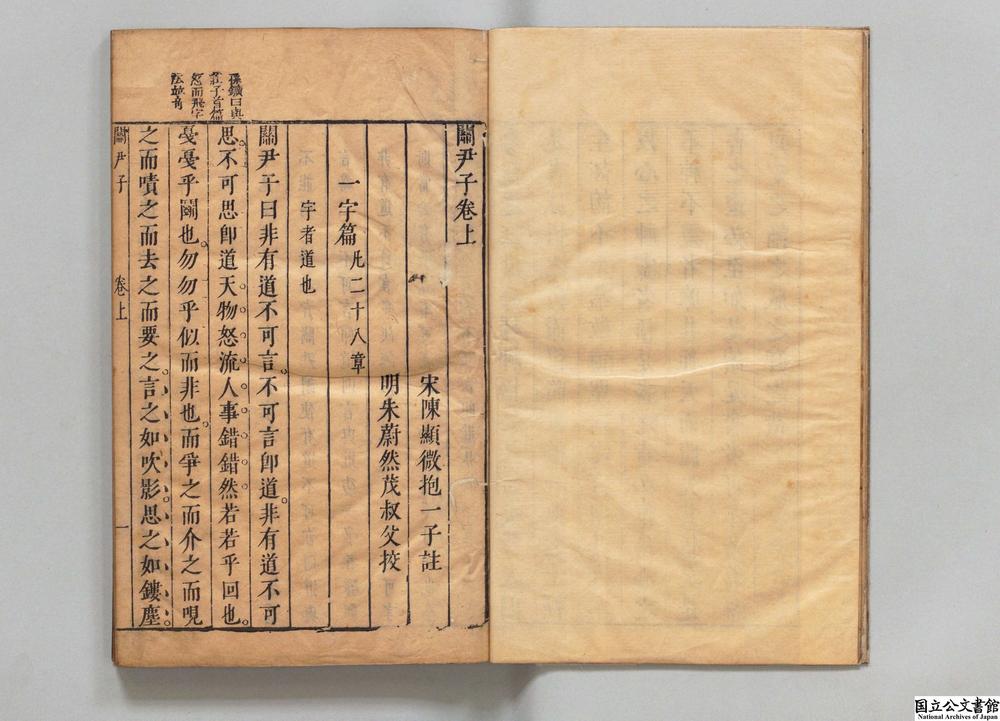 關尹子卷上
宋陳顯微抱一子註
明朱蔚然茂叔父挍
一宇篇 凡二十八章
宇者道也
關尹子曰非有道不可言不可言卽道非有道不可
思不可思卽道天物怒流人事錯錯然若若乎回也
戞戞乎鬭也勿勿乎似而非也而爭之而介之而哯
之而嘖之而去之而要之言之如吹影思之如鏤塵
孫鑛曰與
莊子首篇
怒而飛字
法並奇
關尹子 卷上 一
国立公文書館
National Archives of Japan